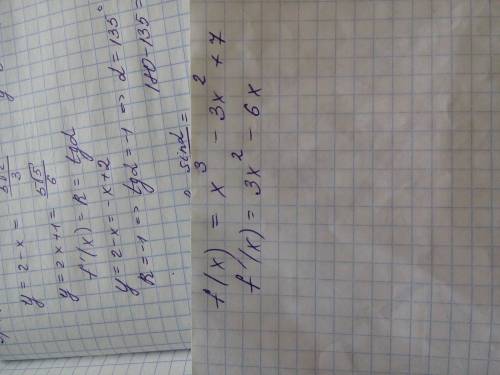 y = 2 - x =
y = 2x + 1 =
f'(x) = k = tgα
y = 2 - x = -x + 2
k = -1 => tgα = -1 => α = 135°
180 - 135 =
sinα =
f(x) = x³ - 3x² + 7
f'(x) = 3x² - 6x